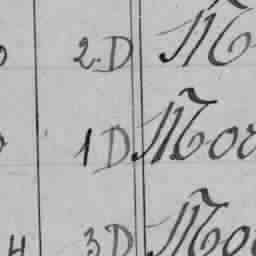 2.D M
1 D Mor
H 3 D Mo